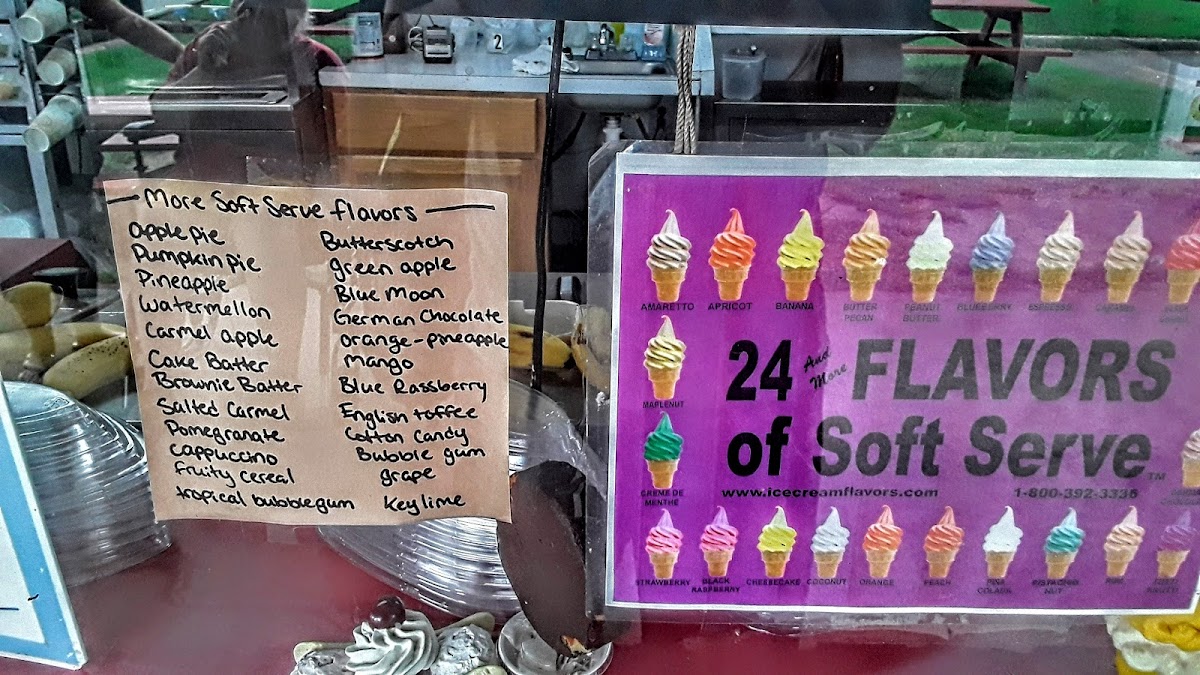 2
More Soft Serve flavors
apple pie
Pumpkin pie
Pineapple
Watermellon
Carmel apple
Cake Batter
Brownie Batter
Salted Carmel
Pomegranate
cappuccino
fruity cereal
tropical bubblegum
Butterscotch
green apple
Blue Moon
German Chocolate
orange-pineapple
mango
Blue Rassberry
English toffee
Cotton Candy
Bubble gum
grape
Key lime
AMARETTO APRICOT BANANA BUTTER PECAN PEANUT BUTTER BLUEBERRY ESPRESSO
MAPLENUT
24 And More FLAVORS
of Soft Serve™
CREME DE
MENTHE
www.icecreamflavors.com 1-800-392-3336
STRAWBERRY BLACK RASPBERRY CHEESECAKE COCONUT ORANGE PEACH PINA COLADA PISTACHIO NUT RUM TUTTI FRUTTI